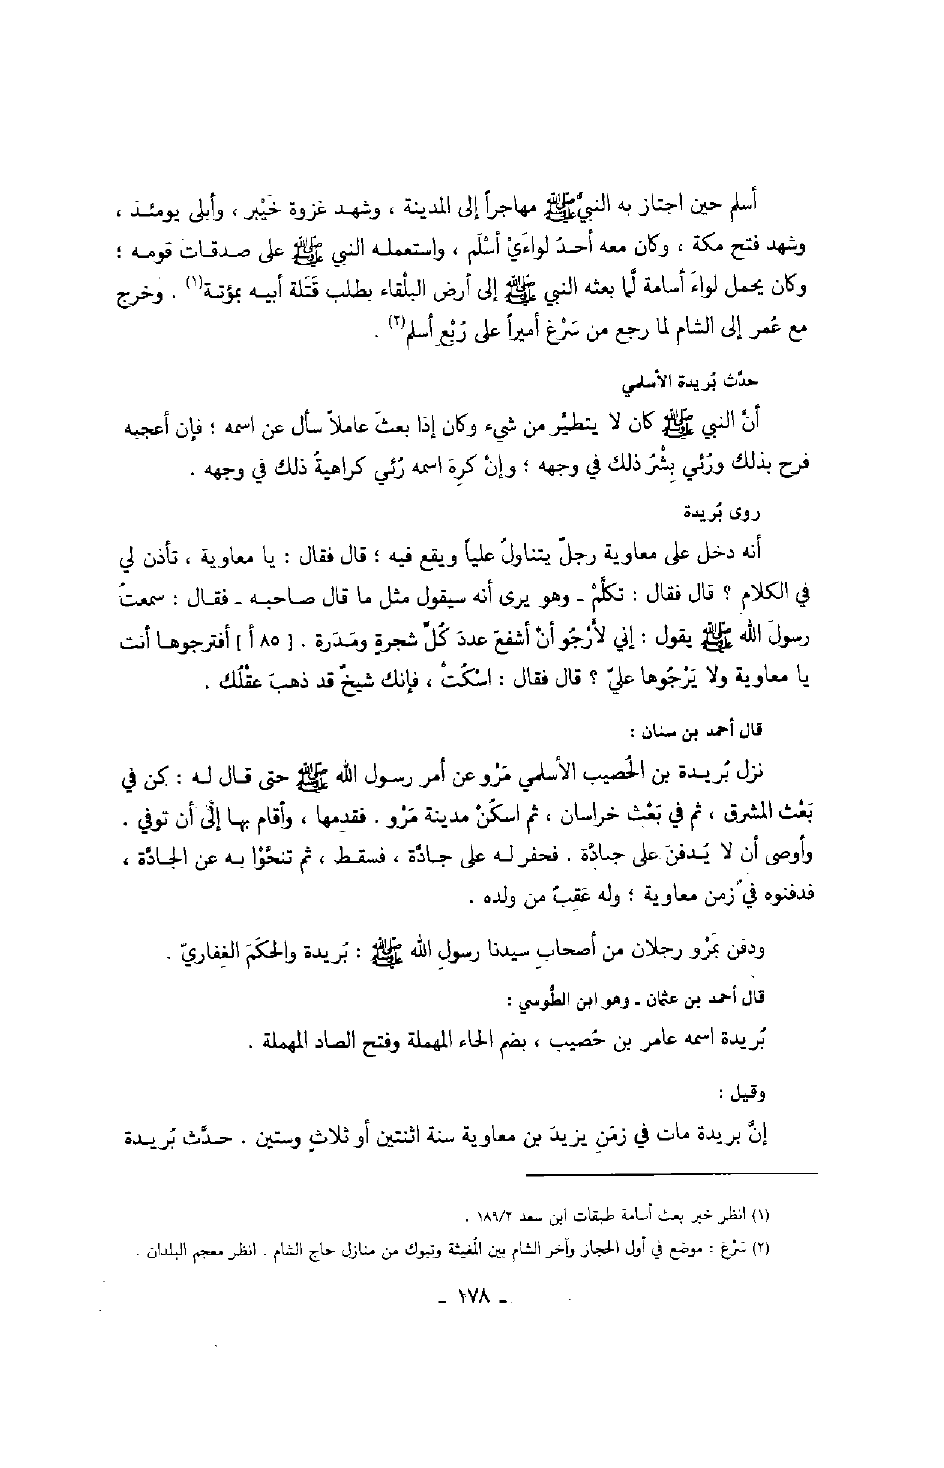 أسلم حين اجتاز به النبيّ ﷺ مهاجراً إلى المدينة ، وشهد غزوة خَيْبر ، وأبلى يومئذ ،
وشهد فتح مكة ، وكان معه أحدُ لواءَيْ أسْلَم ، واستعمله النبي ﷺ على صدقات قومه ؛
وكان يحمل لواءَ أسامة لمّا بعثه النبي ﷺ إلى أرض البلْقاء يطلب قَتَلة أبيه بمؤتة(١) . وخرج
مع عُمر إلى الشام لما رجع من سَرْغ أميراً على رُبْع أسلم(٢) .
حدَّث بُريدة الأسلمي
أنَّ النبي ﷺ كان لا يتطيَّر من شيء وكان إذا بعثَ عاملاً سأل عن اسمه ؛ فإن أعجبه
فرح بذلك ورُئي بِشْرُ ذلك في وجهه ؛ وإنْ كرِهَ اسمه رُئي كراهيةُ ذلك في وجهه .
روى بُريدة
أنه دخل على معاوية رجلٌ يتناولُ علياً ويقع فيه ؛ قال فقال : يا معاوية ، تأذن لي
في الكلام ؟ قال فقال : تكلَّمْ ـ وهو يرى أنه سيقول مثل ما قال صاحبه ـ فقال : سمعتُ
رسولَ الله ﷺ يقول : إني لأَرْجُو أنْ أشفعَ عددَ كُلِّ شجرةٍ ومَدَرة . [ ٨٥ أ ] أفترجوها أنت
يا معاوية ولا يَرْجُوها عليّ ؟ قال فقال : اسْكُتْ ، فإنك شيخٌ قد ذهبَ عقْلُك .
قال أحمد بن سنان :
نزل بُريدة بن الحُصيب الأسلمي مَرْو عن أمر رسول الله ﷺ حتى قال له : كن في
بَعْث المشرق ، ثم في بَعْث خراسان ، ثم اسكُنْ مدينة مَرْو . فقدمها ، وأقام بها إلى أن توفي .
وأوصى أن لا يُدفنَ على جادَّة . فحفر له على جادَّة ، فسقط ، ثم تنحَّوْا به عن الجادَّة ،
فدفنوه في زمن معاوية ؛ وله عَقِبٌ من ولده .
ودفن بمَرْو رجلان من أصحابِ سيدنا رسولِ الله ﷺ : بُريدة والحَكَم الغِفاريّ .
قال أحمد بن عثمان ـ وهو ابن الطُّوسي :
بُريدة اسمه عامر بن حُصيب ، بضم الحاء المهملة وفتح الصاد المهملة .
وقيل :
إنَّ بريدة مات في زمَنِ يزيدَ بن معاوية سنة اثنتين أو ثلاثٍ وستين . حدَّث بُريدة
(١) انظر خبر بعث أسامة طبقات ابن سعد ١٨٩/٢ .
(٢) سَرْغ : موضع في أول الحجاز وآخر الشام بين المُغيثة وتبوك من منازل حاج الشام . انظر معجم البلدان .
ـ ١٧٨ ـ